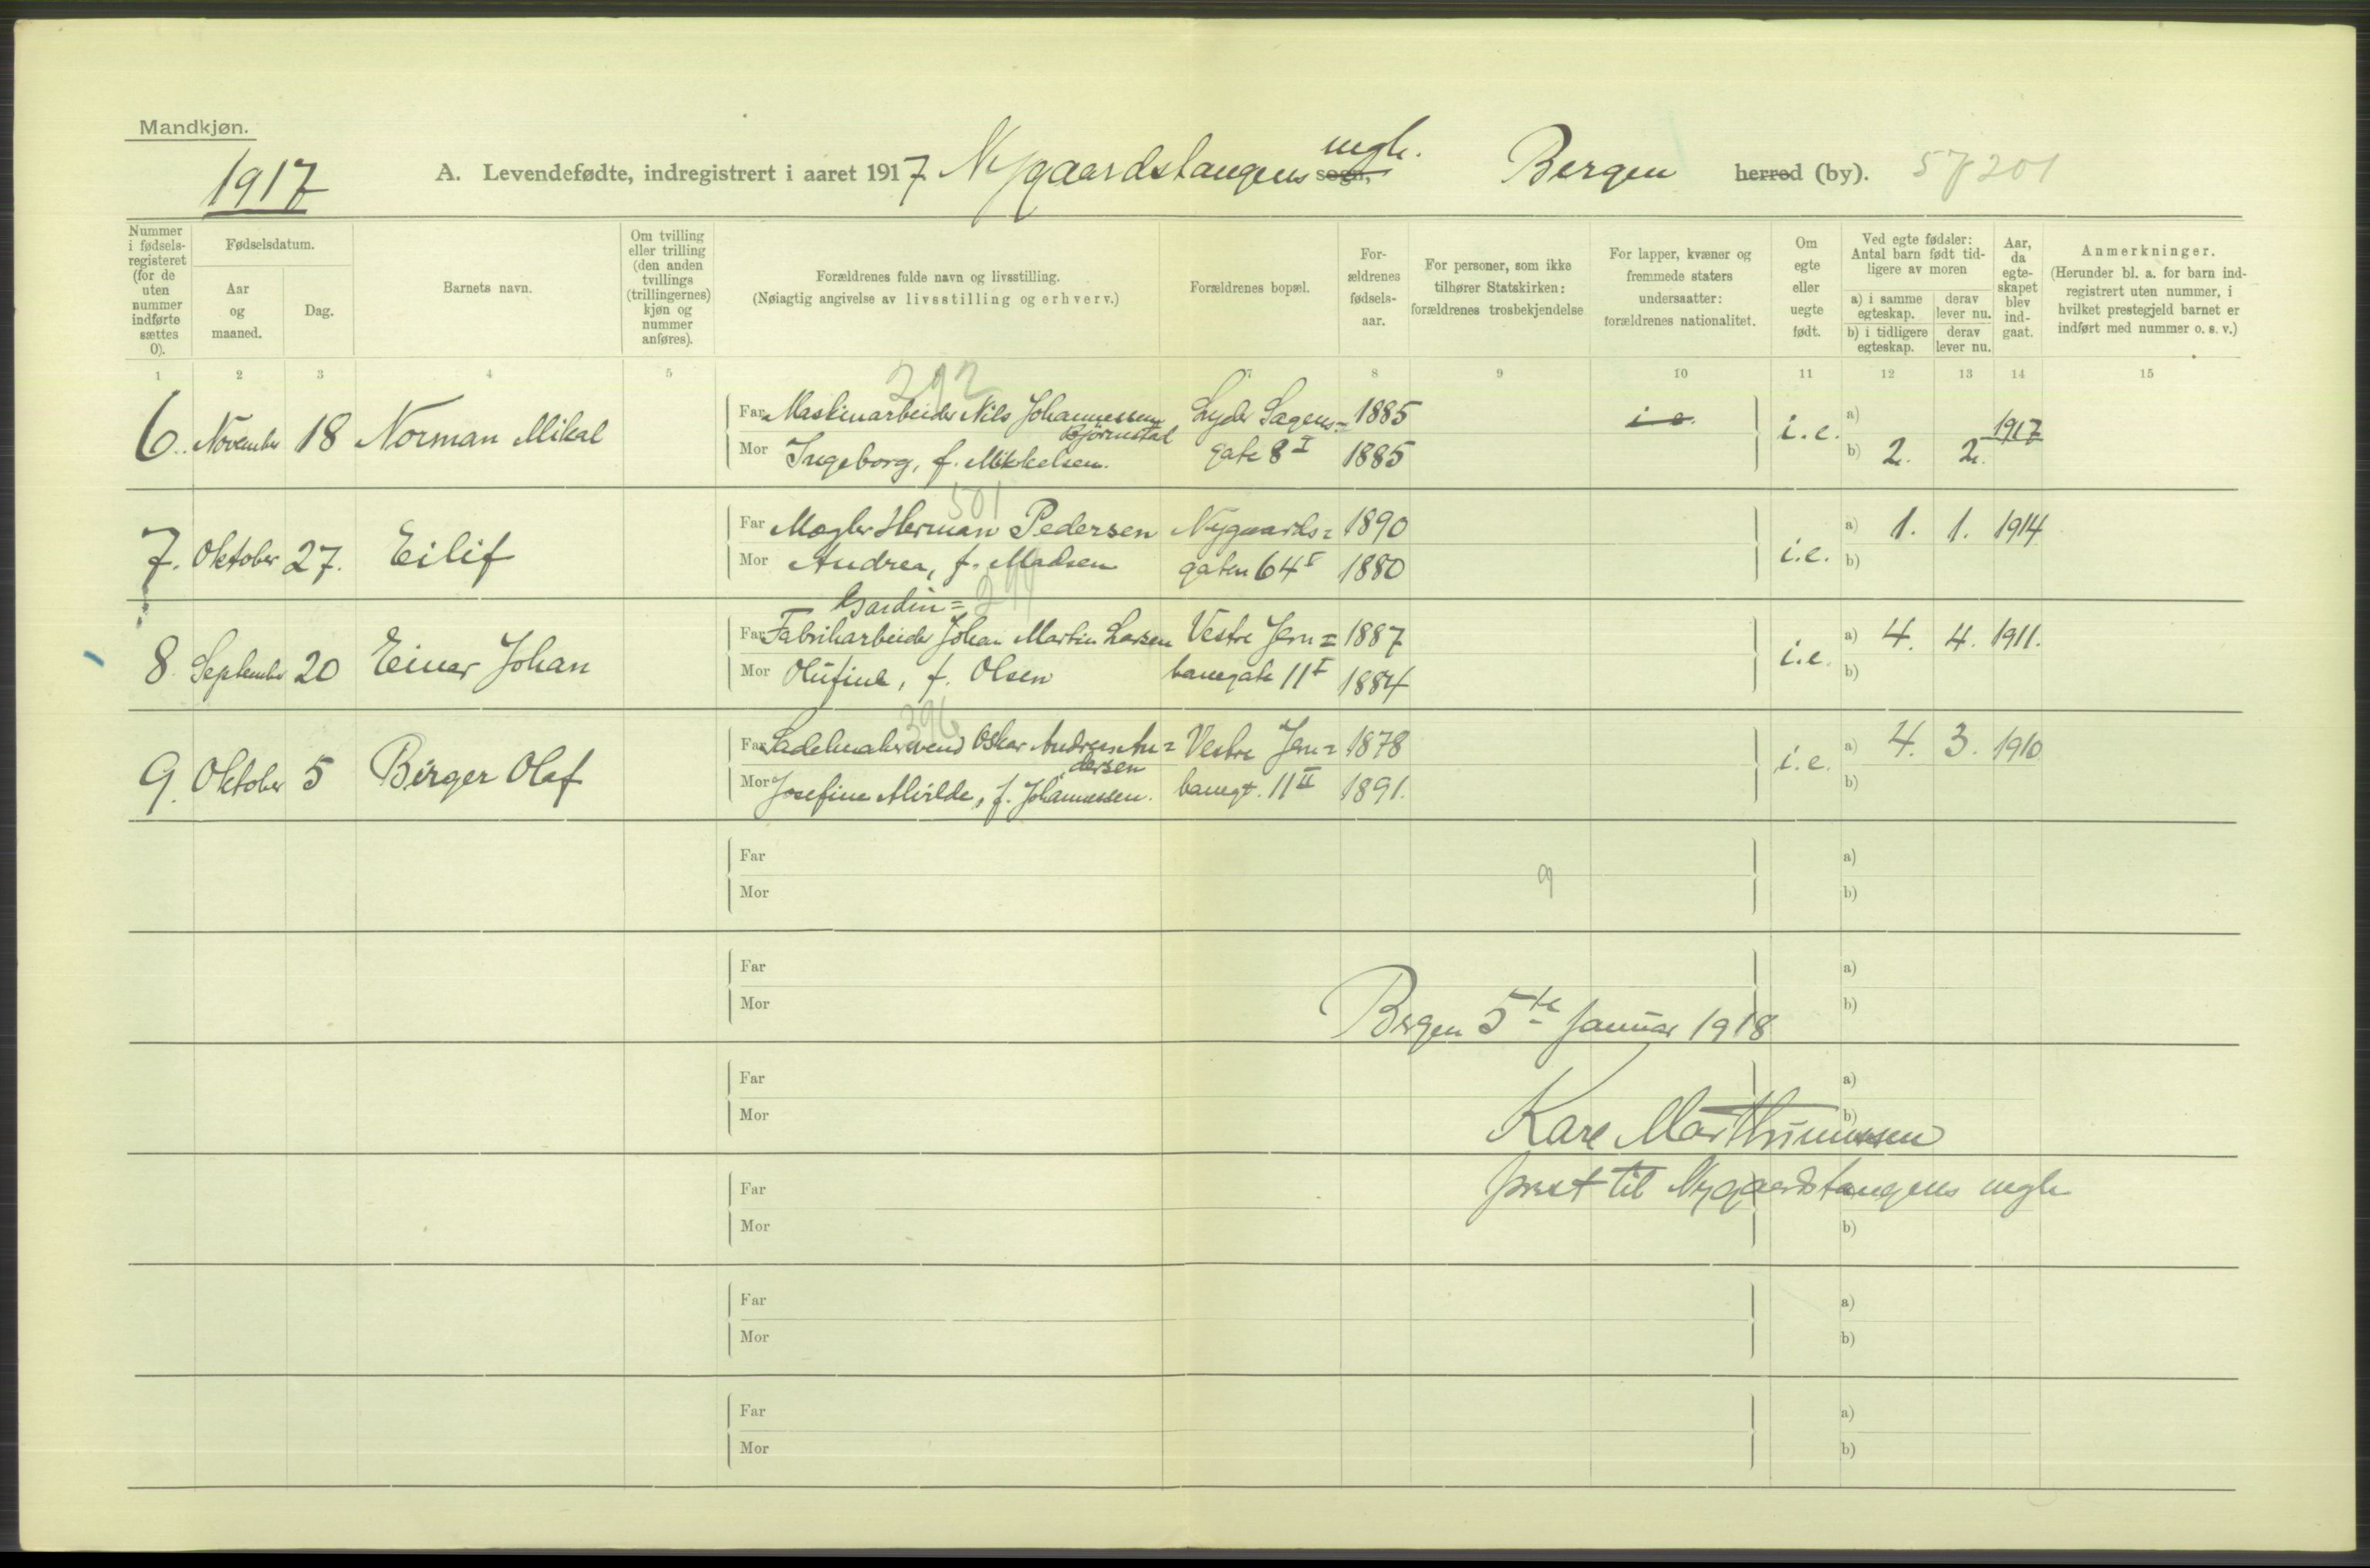 Mandkjøn.
1917
A. Levendefødte, indregistrert i aaret 1917 Nygaardstangens sogn, mgh. Bergen herred (by). 57201
Nummer i fødsels-registeret (for de uten nummer indførte sættes 0).
Fødselsdatum.
Aar og maaned.
Dag.
Barnets navn.
Om tvilling eller trilling (den anden tvillings (trillingernes) kjøn og nummer anføres).
Forældrenes fulde navn og livsstilling.
(Nøiagtig angivelse av livsstilling og erhverv.)
Forældrenes bopæl.
For-ældrenes fødsels-aar.
For personer, som ikke tilhører Statskirken: forældrenes trosbekjendelse
For lapper, kvæner og fremmede staters undersaatter: forældrenes nationalitet.
Om egte eller uegte født.
Ved egte fødsler: Antal barn født tid-ligere av moren
a) i samme egteskap.
derav lever nu.
b) i tidligere egteskap.
derav lever nu.
Aar, da egte-skapet blev ind-gaat.
Anmerkninger.
(Herunder bl. a. for barn ind-registrert uten nummer, i hvilket prestegjeld barnet er indført med nummer o. s. v.)
1 2 3 4 5 7 8 9 10 11 12 13 14 15
292
6. November 18 Norman Mikal
Far Maskinarbeider Nils Johannessen Bjørnstal Lyder Sagens= 1885 i e. i.e. a) 1917
Mor Ingeborg, f. Mikkelsen. gate 8 I 1885 b) 2. 2.
501
7. Oktober 27. Eilif
Far Mægler Herman Pedersen Nygaards= 1890 i.e. a) 1. 1. 1914
Mor Andrea, f. Madsen gaten 64 I 1880 b)
Gardin=
8. September 20 Einar Johan
Far Fabrikarbeider Johan Martin Larsen Vestre Jern= 1887 i.e. a) 4. 4. 1911.
Mor Olufine, f. Olsen banegate 11 I 1884 b)
396
9. Oktober 5 Birger Olaf
Far Sadelmakersvend Oskar Andreas An=dersen Vestre Jern= 1878 i.e. a) 4. 3. 1910
Mor Josefine Alvilde, f. Johannessen. banegt. 11 II 1891. b)
Far a)
9
Mor b)
Far a)
Mor b)
Bergen 5te Januar 1918
Far a)
Mor b)
Kare Marthinussen
prest til Nygaardstangens mgh
Far
Mor b)
Far a)
Mor b)
Far a)
Mor b)